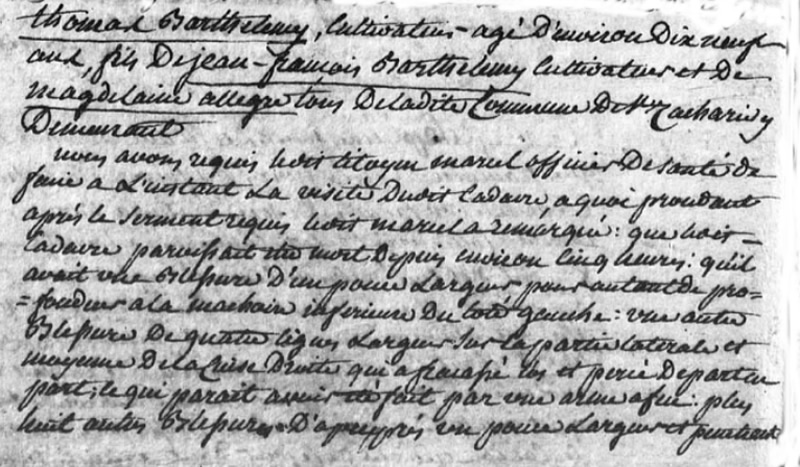 thomas Barthelemy, Cultivateur agé D'environ Dix neuf
ans, fils Dejean-françois Barthelemy Cultivateur et De
magdelaine allegre tous Deladite Commune De St Zacharie y
Demeurant
nous avons requis le dit Citoyen marcel officier De santé De
faire a L'instant La visite Dudit Cadavre, a quoi procedant
après le serment requis le dit marcel a remarqué : que le dit
Cadavre paroissait être mort Depuis environ Cinq heures : qu'il
avait une Blessure D'un pouce Largeur pour autant de pro=
=fondeur a la machoire inferieure Du Coté gauche : une autre
Blessure De quatre lignes Largeur sur la partie laterale et
moyenne De la Cuise Droite qui a fracassé l'os et percé De part en
part, ce qui parait avoir été fait par une arme a feu : plus
huit autres Blessures D'apeuprès un pouce Largeur et